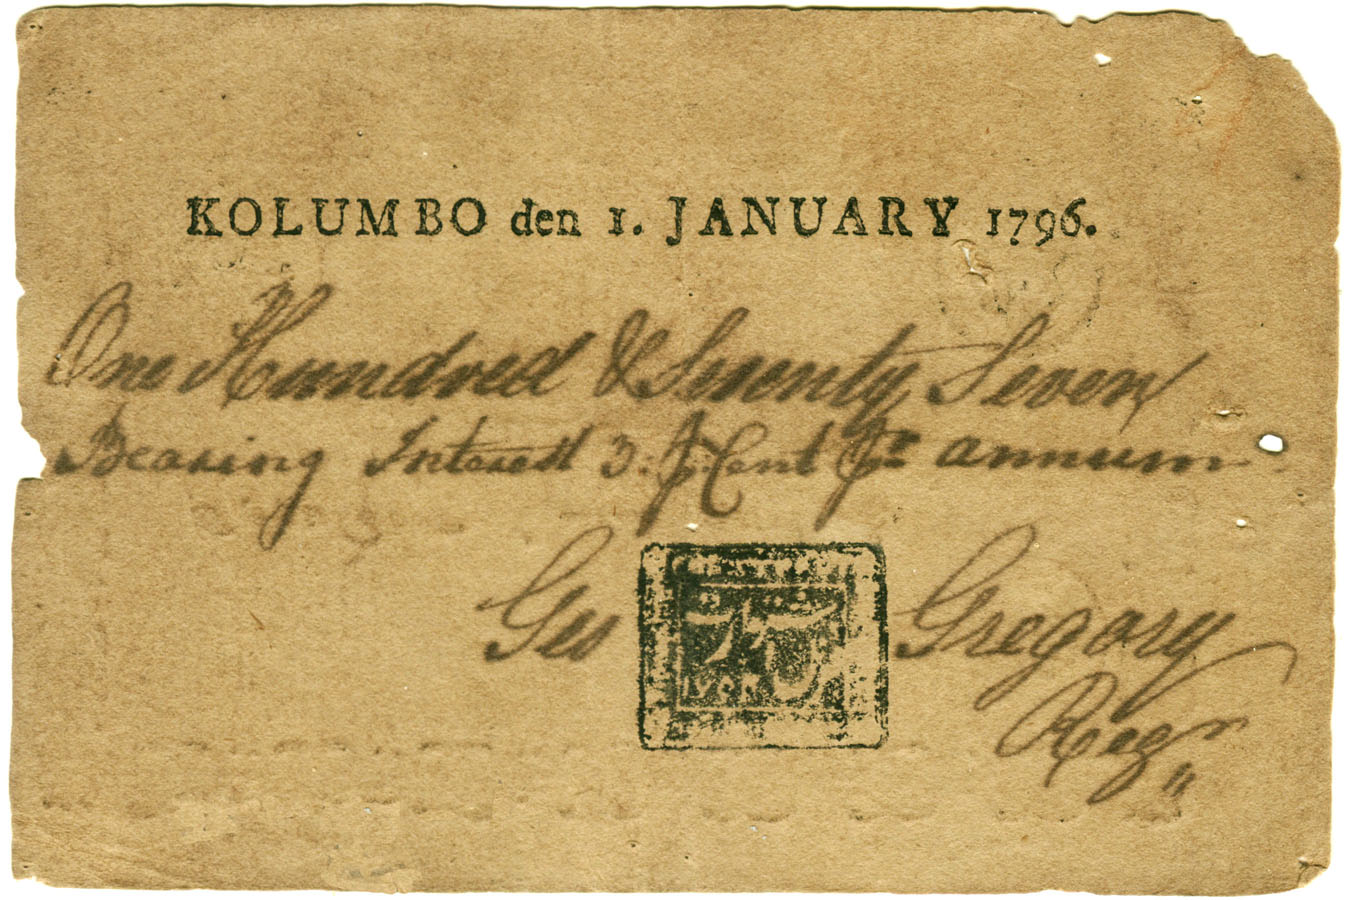 KOLUMBO den 1. JANUARY 1796.
One Hundred & Seventy Seven
Bearing Interest 3. Pr Cent Pr annum
Geo Gregory
Regr